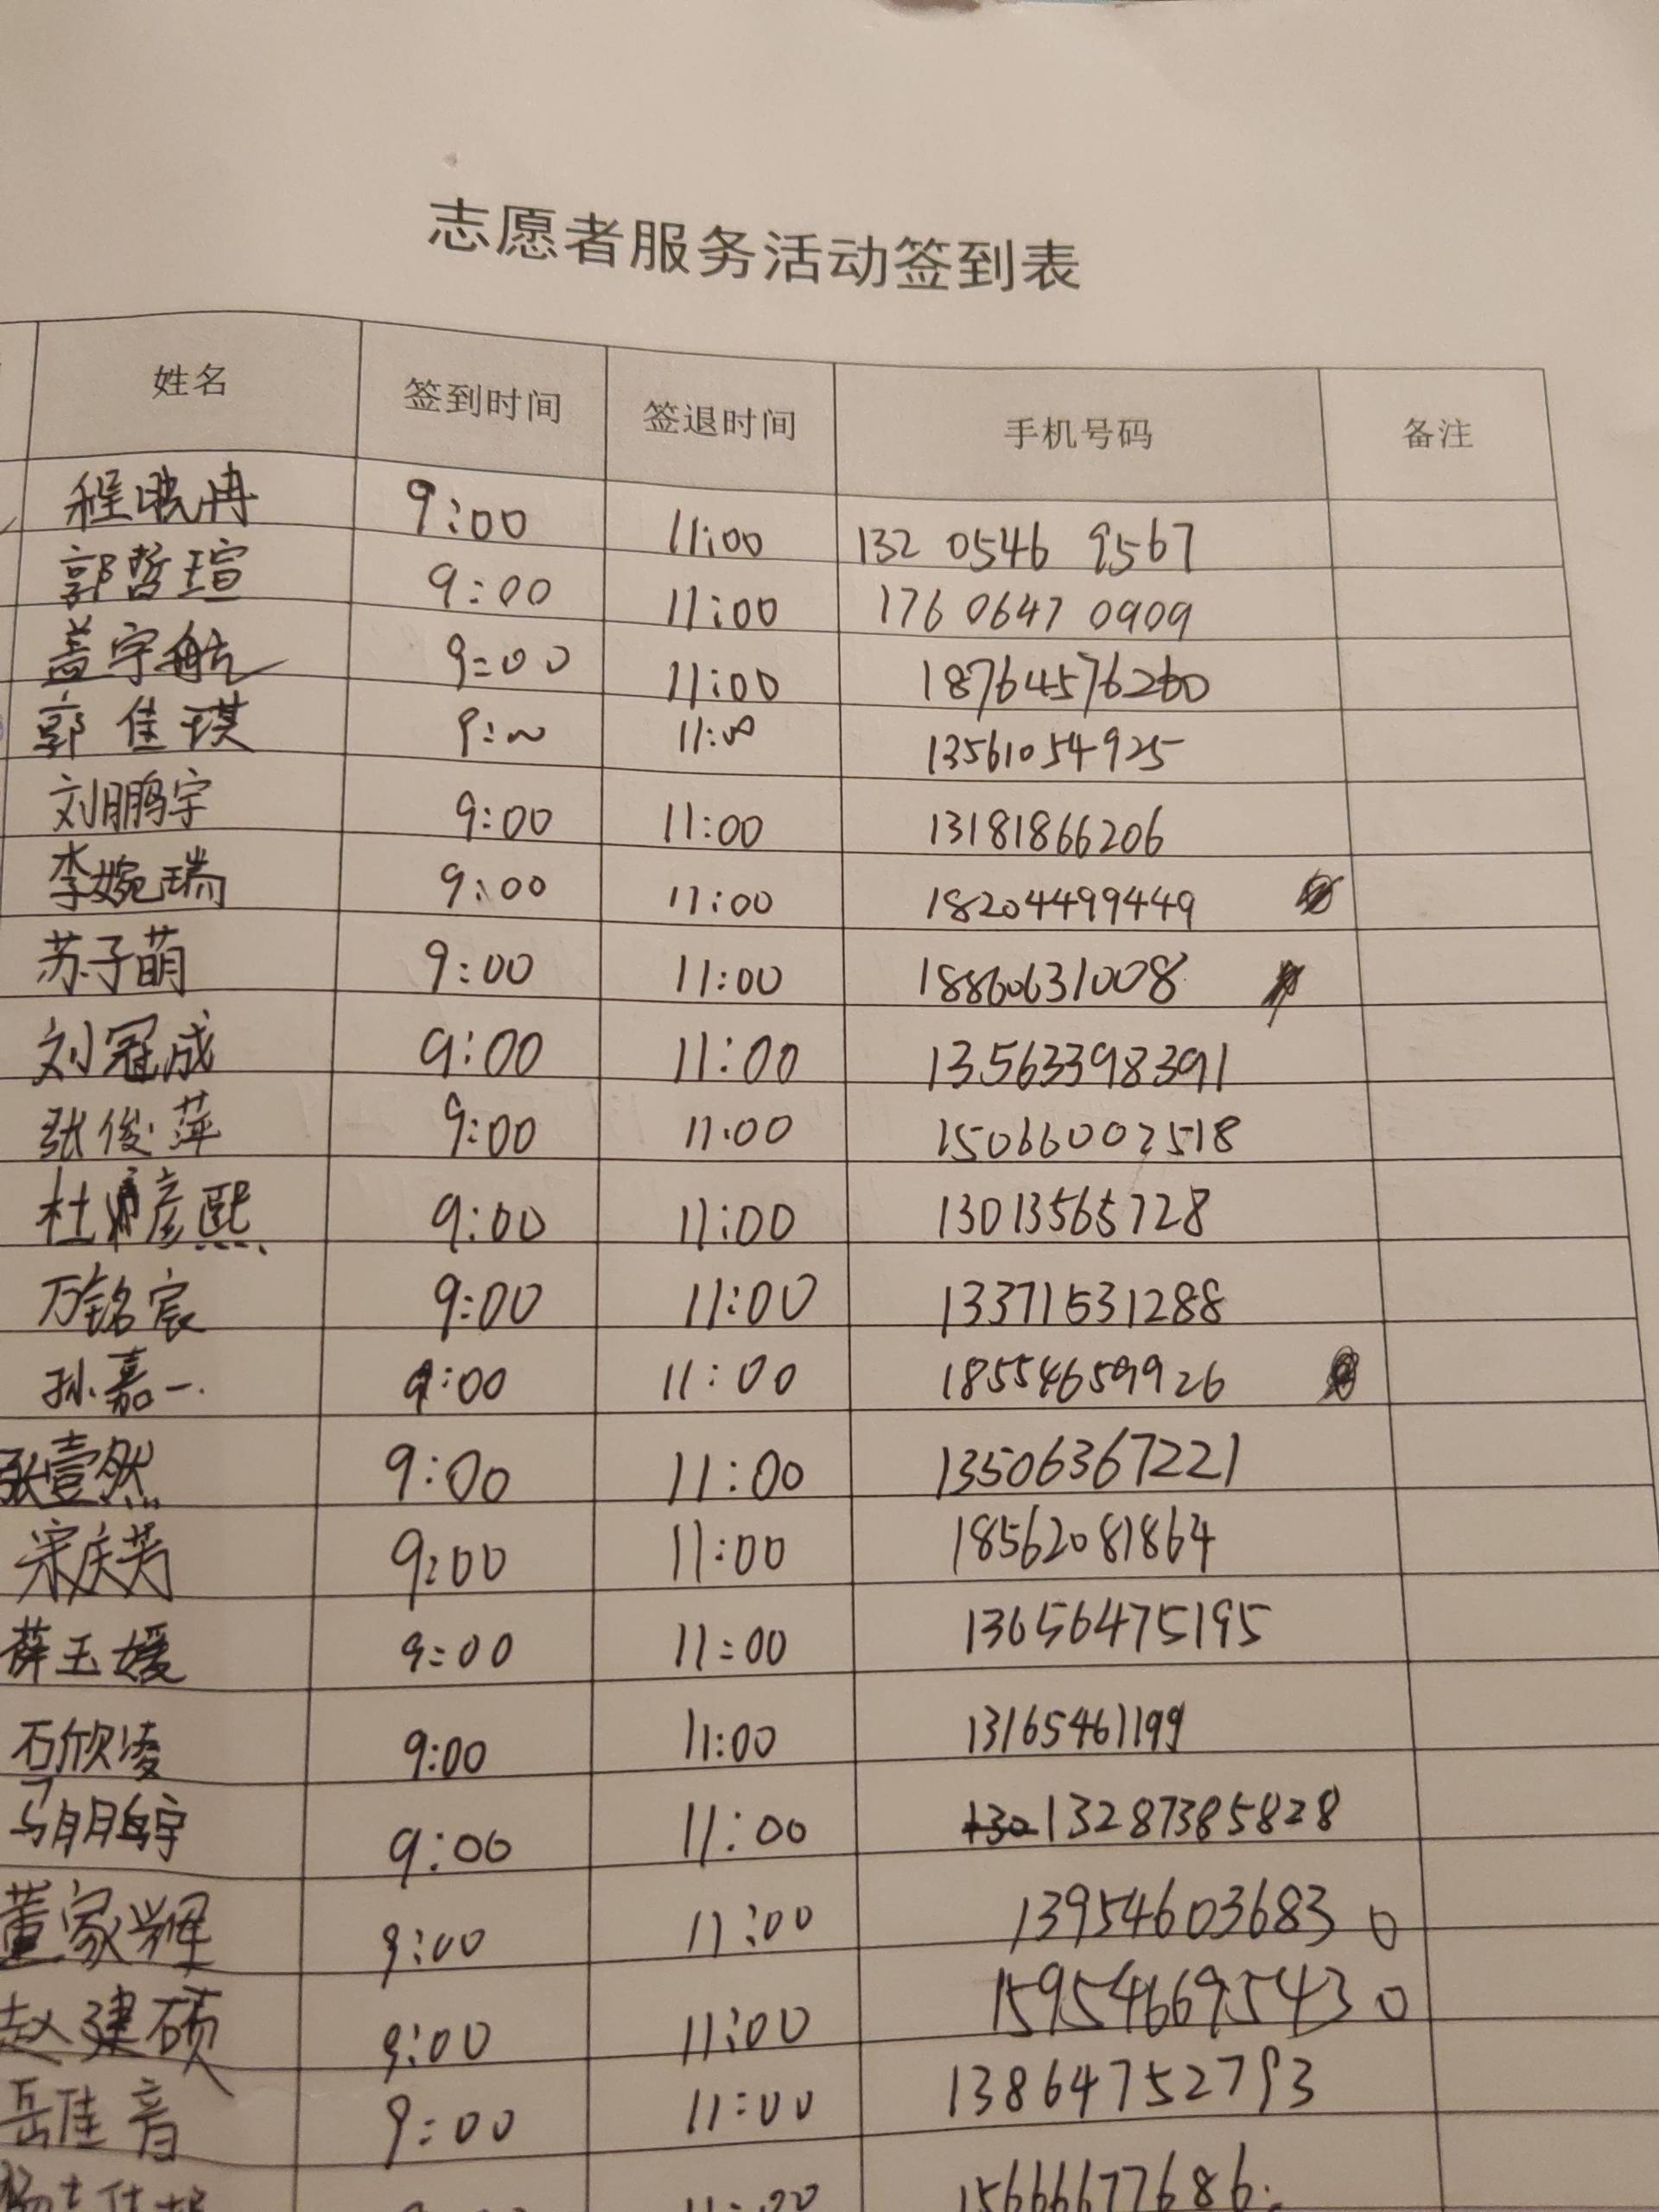 志愿者服务活动签到表
姓名 签到时间 签退时间 手机号码 备注
程晓冉 9:00 11:00 132 0546 9567
郭哲瑄 9:00 11:00 176 0647 0909
盖宇航 9:00 11:00 18764576260
郭佳琪 9:00 11:00 13561054925
刘鹏宇 9:00 11:00 13181866206
李婉瑞 9:00 11:00 18204499449
苏子萌 9:00 11:00 18860631008
刘冠成 9:00 11:00 13563398391
张俊萍 9:00 11:00 15066002518
杜彦熙 9:00 11:00 13013565728
万铭宸 9:00 11:00 13371531288
孙嘉一 9:00 11:00 18554659926
张壹然 9:00 11:00 13506367221
宋庆芳 9:00 11:00 18562081864
薛玉媛 9:00 11:00 13656475195
石欣凌 9:00 11:00 13165461199
马鹏宇 9:00 11:00 13287385828
董家辉 9:00 11:00 13954603683 0
赵建硕 9:00 11:00 15954669543 0
岳佳音 9:00 11:00 13864752793
11:00 15666677686